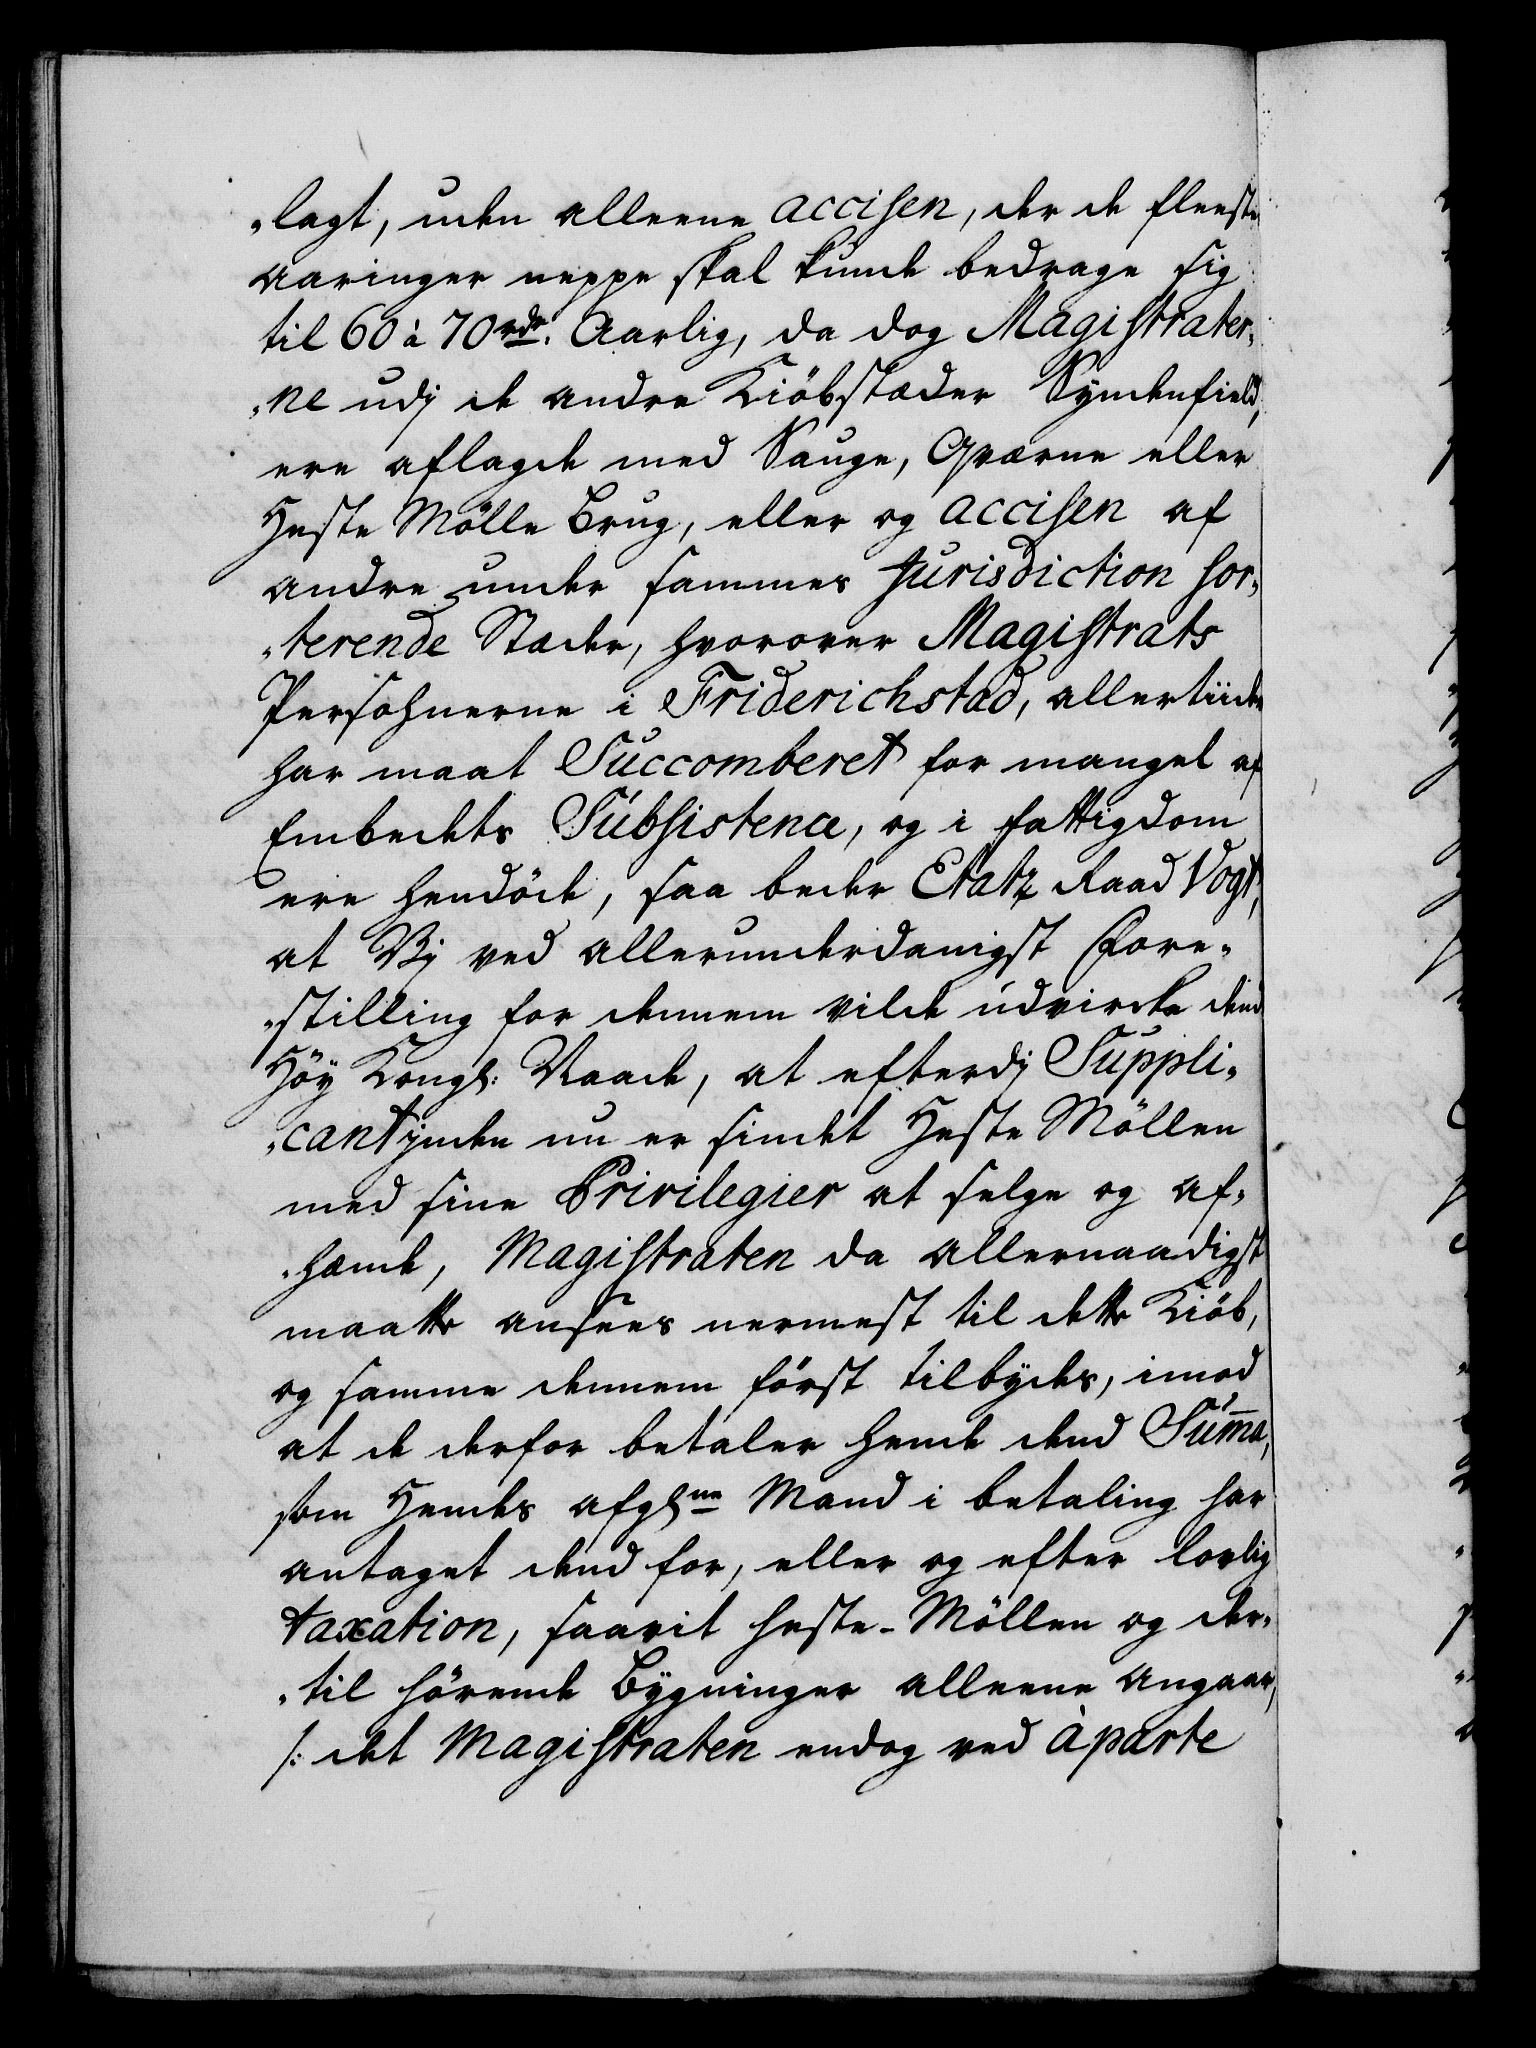 „lagt, uden alleene accisen, der de fleeste
aaringer neppe skal kunde bedrage sig
til 60 à 70 rdr. Aarlig, da dog Magistrater„
„ne udj de andre Kiöbstæder Syndenfields,
ere aflagde med Sauge, Qværne eller
Heste Mölle Brug, eller og accisen af
andre under sammes Jurisdiction sor„
„terende Stæder, hvorover Magistrats
Persohnerne i Friderichstad, allertiide
har maat Succomberet for mangel af
Embedets Subsistence, og i fattigdom
ere hendöde, saa beder Etatz Raad Vogt,
at Vj ved allerunderdanigst Fore„
„stilling for dennem vilde udvircke dend
Höy Kongl: Naade, at efterdj Suppli„
„cantjnden nu er sindet Heste Möllen
med sine Privilegier at selge og af„
„hænde, Magistraten da allernaadigst
maatte ansees nermest til dette Kiöb,
og samme dennem först tilbydes, imod
at de derfor betaler hende dend Sum̅a,
som Hendes afgl:ne Mand i betaling har
antaget dend for, eller og efter lovlig
taxation, saavit heste-Möllen og der„
„til hörende Bygninger alleene angaar,
/: det Magistraten endog ved àparte